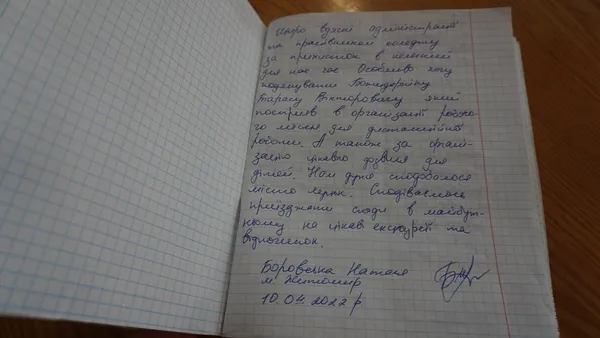 Щиро вдячні адміністрації
та працівникам коледжу
за прихисток в нелегкий
для нас час. Особливо хочу
подякувати
Тарасу Вікторовичу який
посприяв в організації робочо-
го місця для дистанційної
роботи. А також за органі-
зацію цікавого дозвілля для
дітей. Нам дуже сподобалося
місто
Сподіваємося
приїзджати сюди в майбут-
ньому на цікаві екскурсії та
відпочинок.
Наталя
м. Житомир
10.04.2022 р